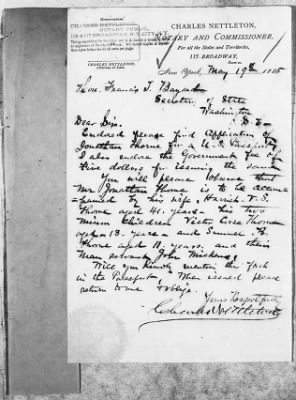 Memorandum
CHARLES NETTLETON,
NOTARY PUBLIC,
115 BROADWAY, N.Y. CITY, N.Y.
CHARLES NETTLETON,
Attorney at Law.
CHARLES NETTLETON,
NOTARY AND COMMISSIONER,
For all the States and Territories,
115 BROADWAY,
New York, May 19th 1885
Hon. Francis T. Bayard
Secretary of State
Washington
D. C.
Dear Sir,
Enclosed please find Application of
Jonathan Thorne for a U.S. Passport
I also enclose the Government fee of
Five dollars for issuing the same
You will please observe that
Mr Jonathan Thorne is to be accom-
panied by his wife, Harriet. V. S.
Thorne aged 41. years - his two
minor children Victor Corse Thorne
aged 13. years and Samuel B.
Thorne aged 11. years, and their
man servant John Mickens,
Will you kindly mention the fact
in the Passport. When issued please
return to me & oblige.
Yours Respectfully
Charles Nettleton